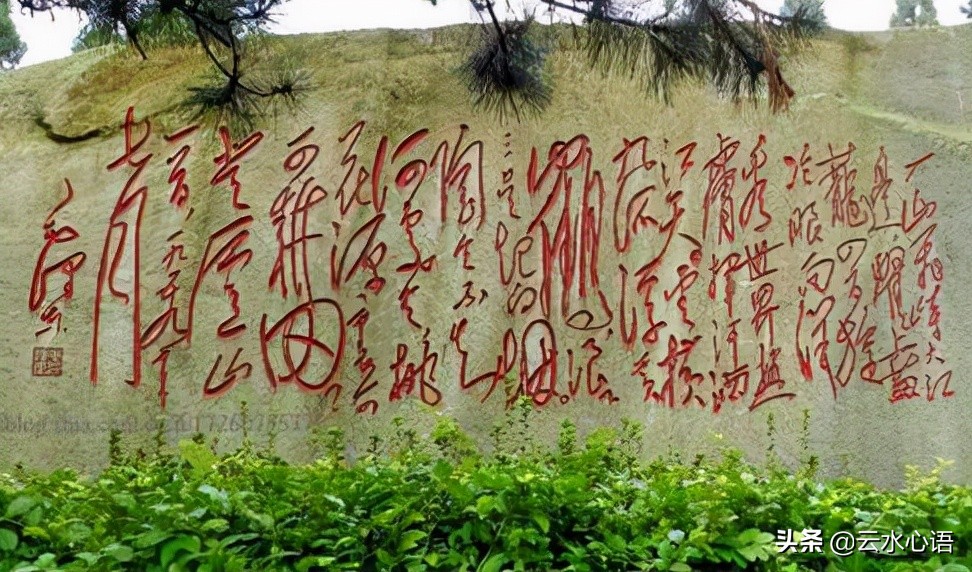 一山飛峙大江
邊躍上葱
蘢四百旋
冷眼向洋
看世界熱
膚挥汗洒
江天云横
九派浮黄
鹤浪
下三吴起白烟
陶令不知
何處去桃
花源里
可耕田
登庐山
一九五九年
七月
毛泽东
头条 @云水心语